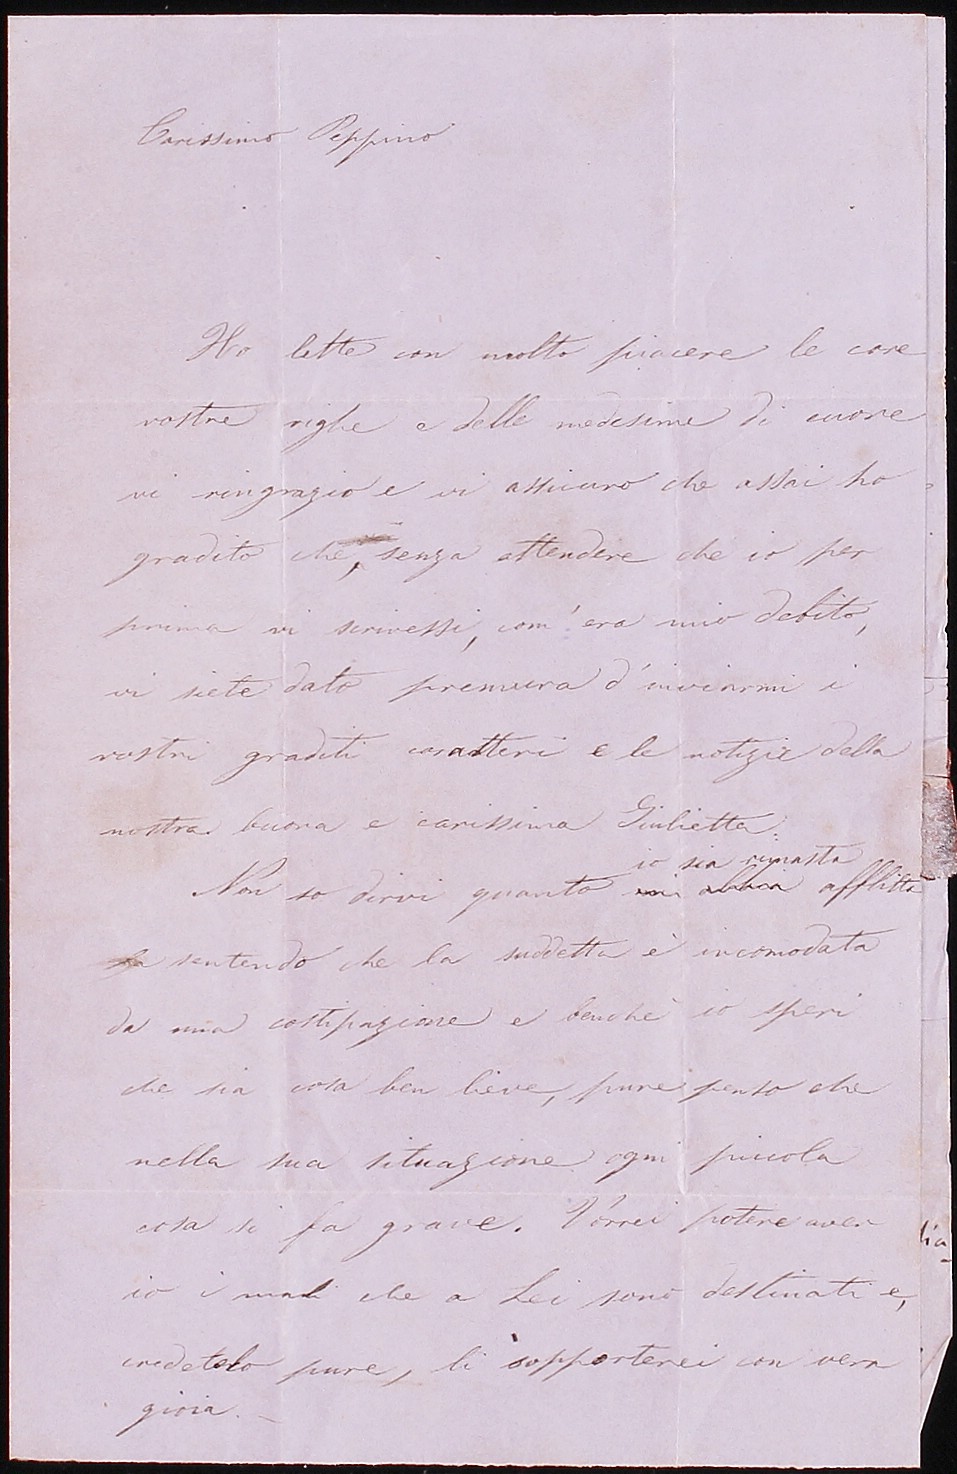 Carissimo Peppino
Ho lette con molto piacere le care
vostre righe e delle medesime di cuore
vi ringrazio e vi assicuro che assai ho
gradito che, senza attendere che io per
prima vi scrivessi, com'era mio debito,
vi siete dato premura d'inviarmi i
vostri graditi caratteri e le notizie della
nostra buona e carissima Giulietta.
io sia rimasta
Non so dirvi quanto mi abbia afflitta
sentendo che la suddetta è incomodata
da una costipazione e benchè io speri
che sia cosa ben lieve, pure penso che
nella sua situazione ogni piccola
cosa si fa grave. Vorrei potere aver
io i mali che a Lei sono destinati e,
credetelo pure, li sopporterei con vera
gioia. _